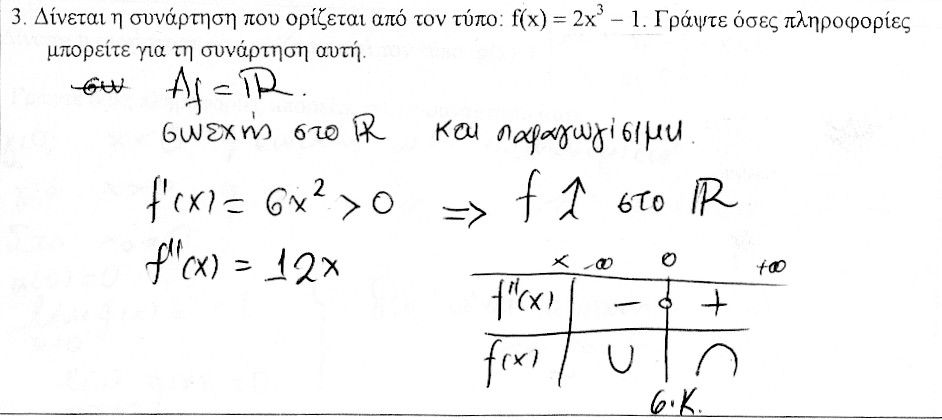 3. Δίνεται η συνάρτηση που ορίζεται από τον τύπο: f(x) = 2x³ – 1. Γράψτε όσες πληροφορίες
μπορείτε για τη συνάρτηση αυτή.
Af = ℝ.
συνεχής στο ℝ και παραγωγίσιμη.
f'(x) = 6x² > 0 => f ↑ στο ℝ
f''(x) = 12x
x -∞ 0 +∞
f''(x) − 0 +
f(x) ∪ ∩
σ.κ.